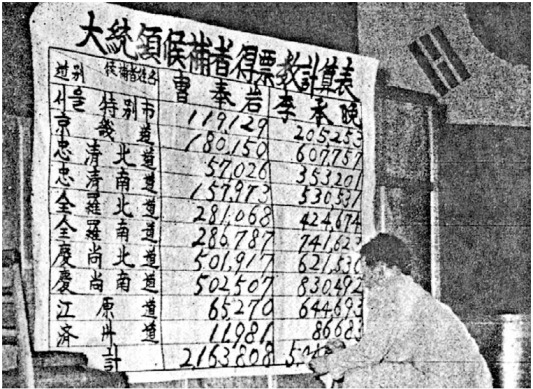 大統領候補者得票数計算表
候補者姓名 曺奉岩 李承晩
서울特别市 119,129 205,253
京畿道 180,150 607,757
忠清北道 57,026 353,201
忠清南道 157,973 530,531
全羅北道 281,068 424,674
全羅南道 286,787 741,623
慶尚北道 501,917 621,530
慶尚南道 502,507 830,492
江原道 65,270 644,693
済州道 11,981 86,683
計 2,163,808